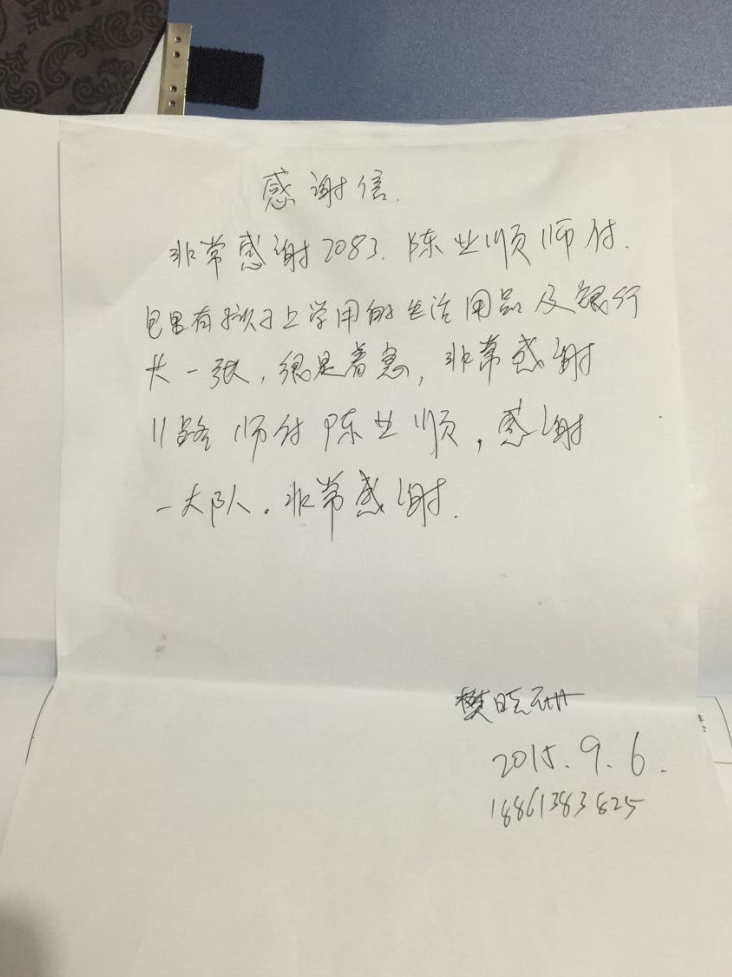 感谢信.
非常感谢2083.陈业顺师付.
包里有孩子上学用的生活用品及银行
卡一张,很是着急,非常感谢
11路师付陈业顺,感谢
一大队。非常感谢.
樊晓珊
2015.9.6.
18861383825